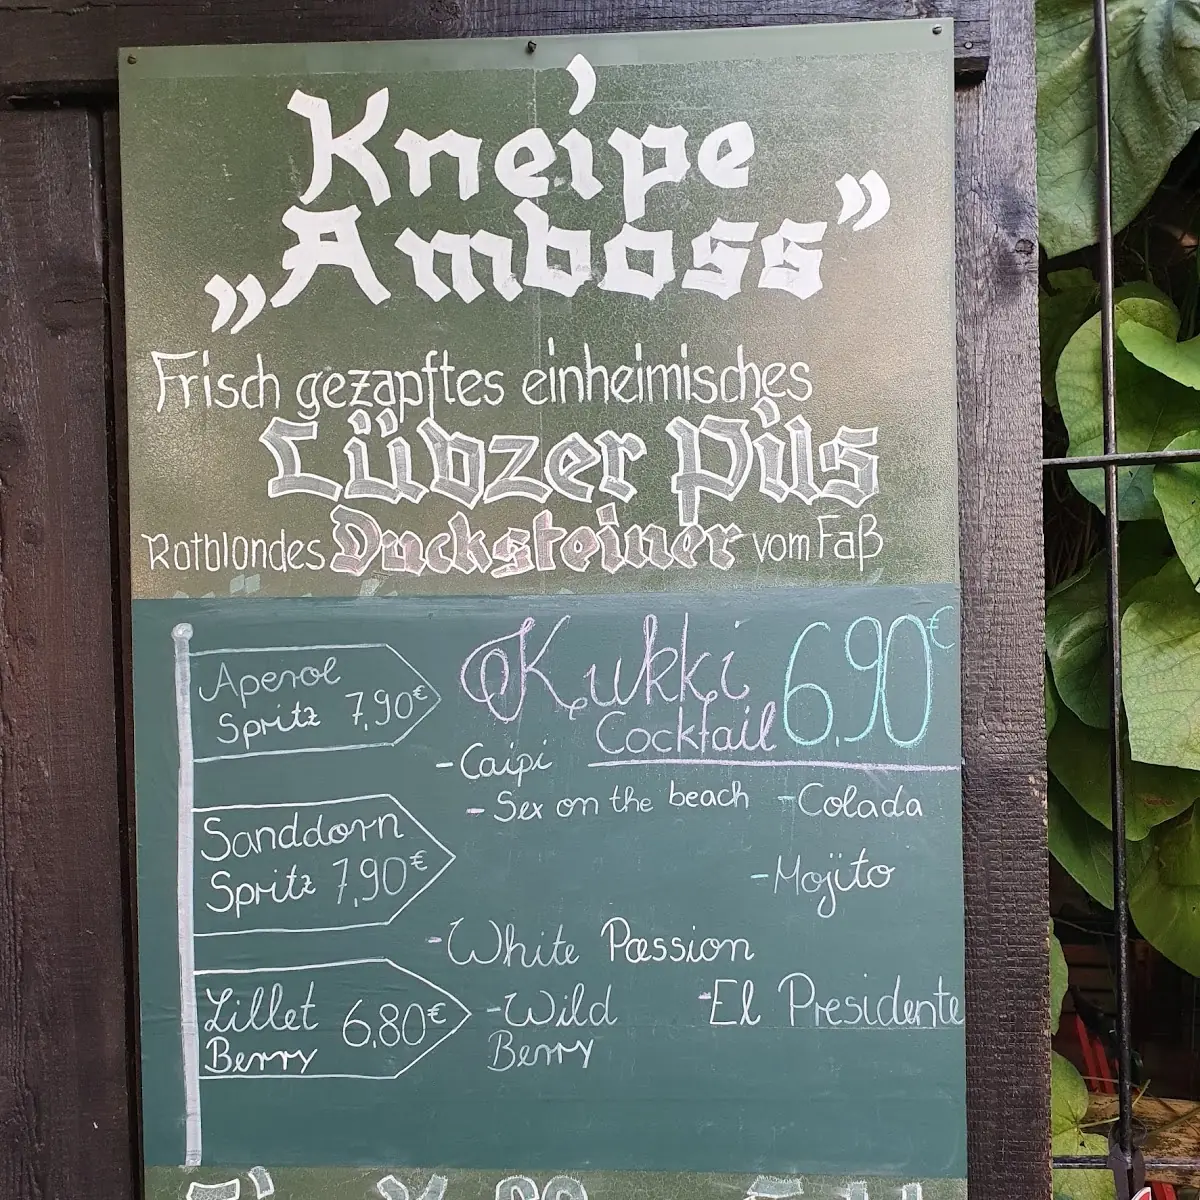 Kneipe
„Amboss”
Frisch gezapftes einheimisches
Lübzer Pils
Rotblondes Ducksteiner vom Faß
Aperol
Spritz 7,90€
Sanddorn
Spritz 7,90€
Lillet
Berry 6,80€
Kukki 6,90€
Cocktail
-Caipi
-Sex on the beach
-Colada
-Mojito
-White Passion
-Wild
Berry
-El Presidente